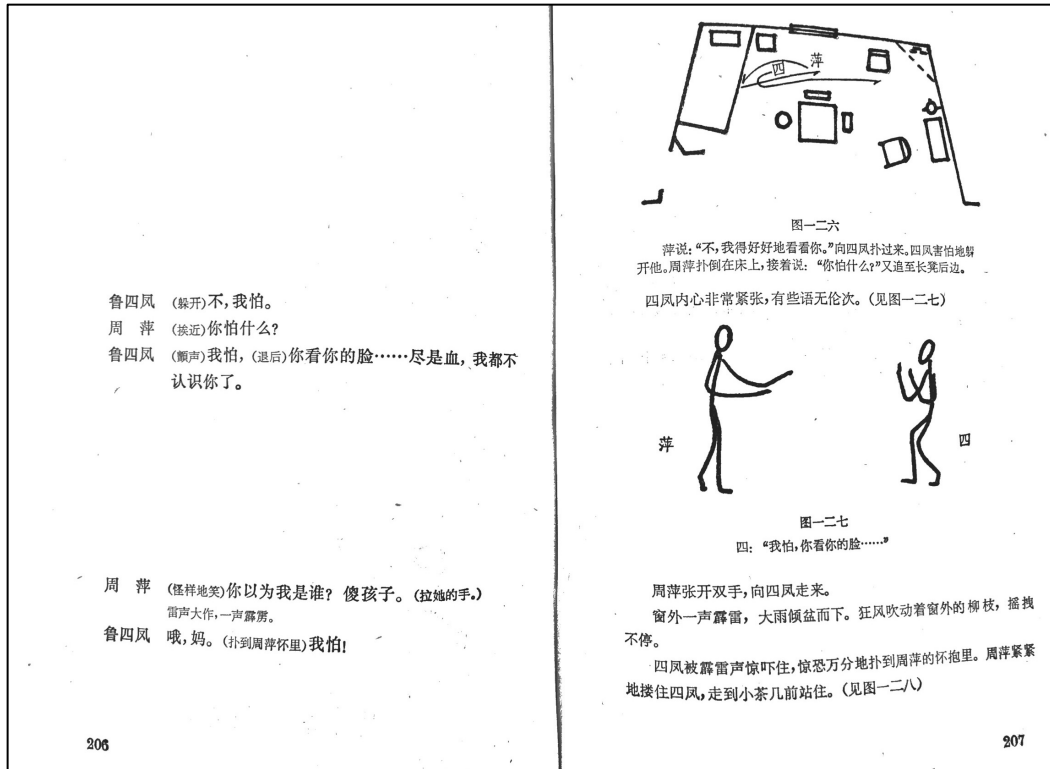 鲁四凤 (躲开)不,我怕。
周 萍 (挨近)你怕什么?
鲁四凤 (颤声)我怕,(退后)你看你的脸……尽是血,我都不
认识你了。
周 萍 (怪样地笑)你以为我是谁? 傻孩子。(拉她的手。)
雷声大作,一声霹雳。
鲁四凤 哦,妈。(扑到周萍怀里)我怕!
206
四 萍
图一二六
萍说:“不,我得好好地看看你。”向四凤扑过来。四凤害怕地躲
开他。周萍扑倒在床上,接着说:“你怕什么?”又追至长凳后边。
四凤内心非常紧张,有些语无伦次。(见图一二七)
萍 四
图一二七
四:“我怕,你看你的脸……”
周萍张开双手,向四凤走来。
窗外一声霹雷,大雨倾盆而下。狂风吹动着窗外的柳枝,摇拽
不停。
四凤被霹雷声惊吓住,惊恐万分地扑到周萍的怀抱里。周萍紧紧
地搂住四凤,走到小茶几前站住。(见图一二八)
207